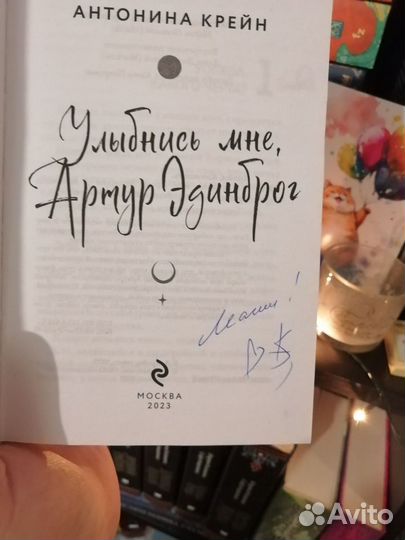 АНТОНИНА КРЕЙН
Улыбнись мне,
Артур Эдинброг
МОСКВА
2023
Avito